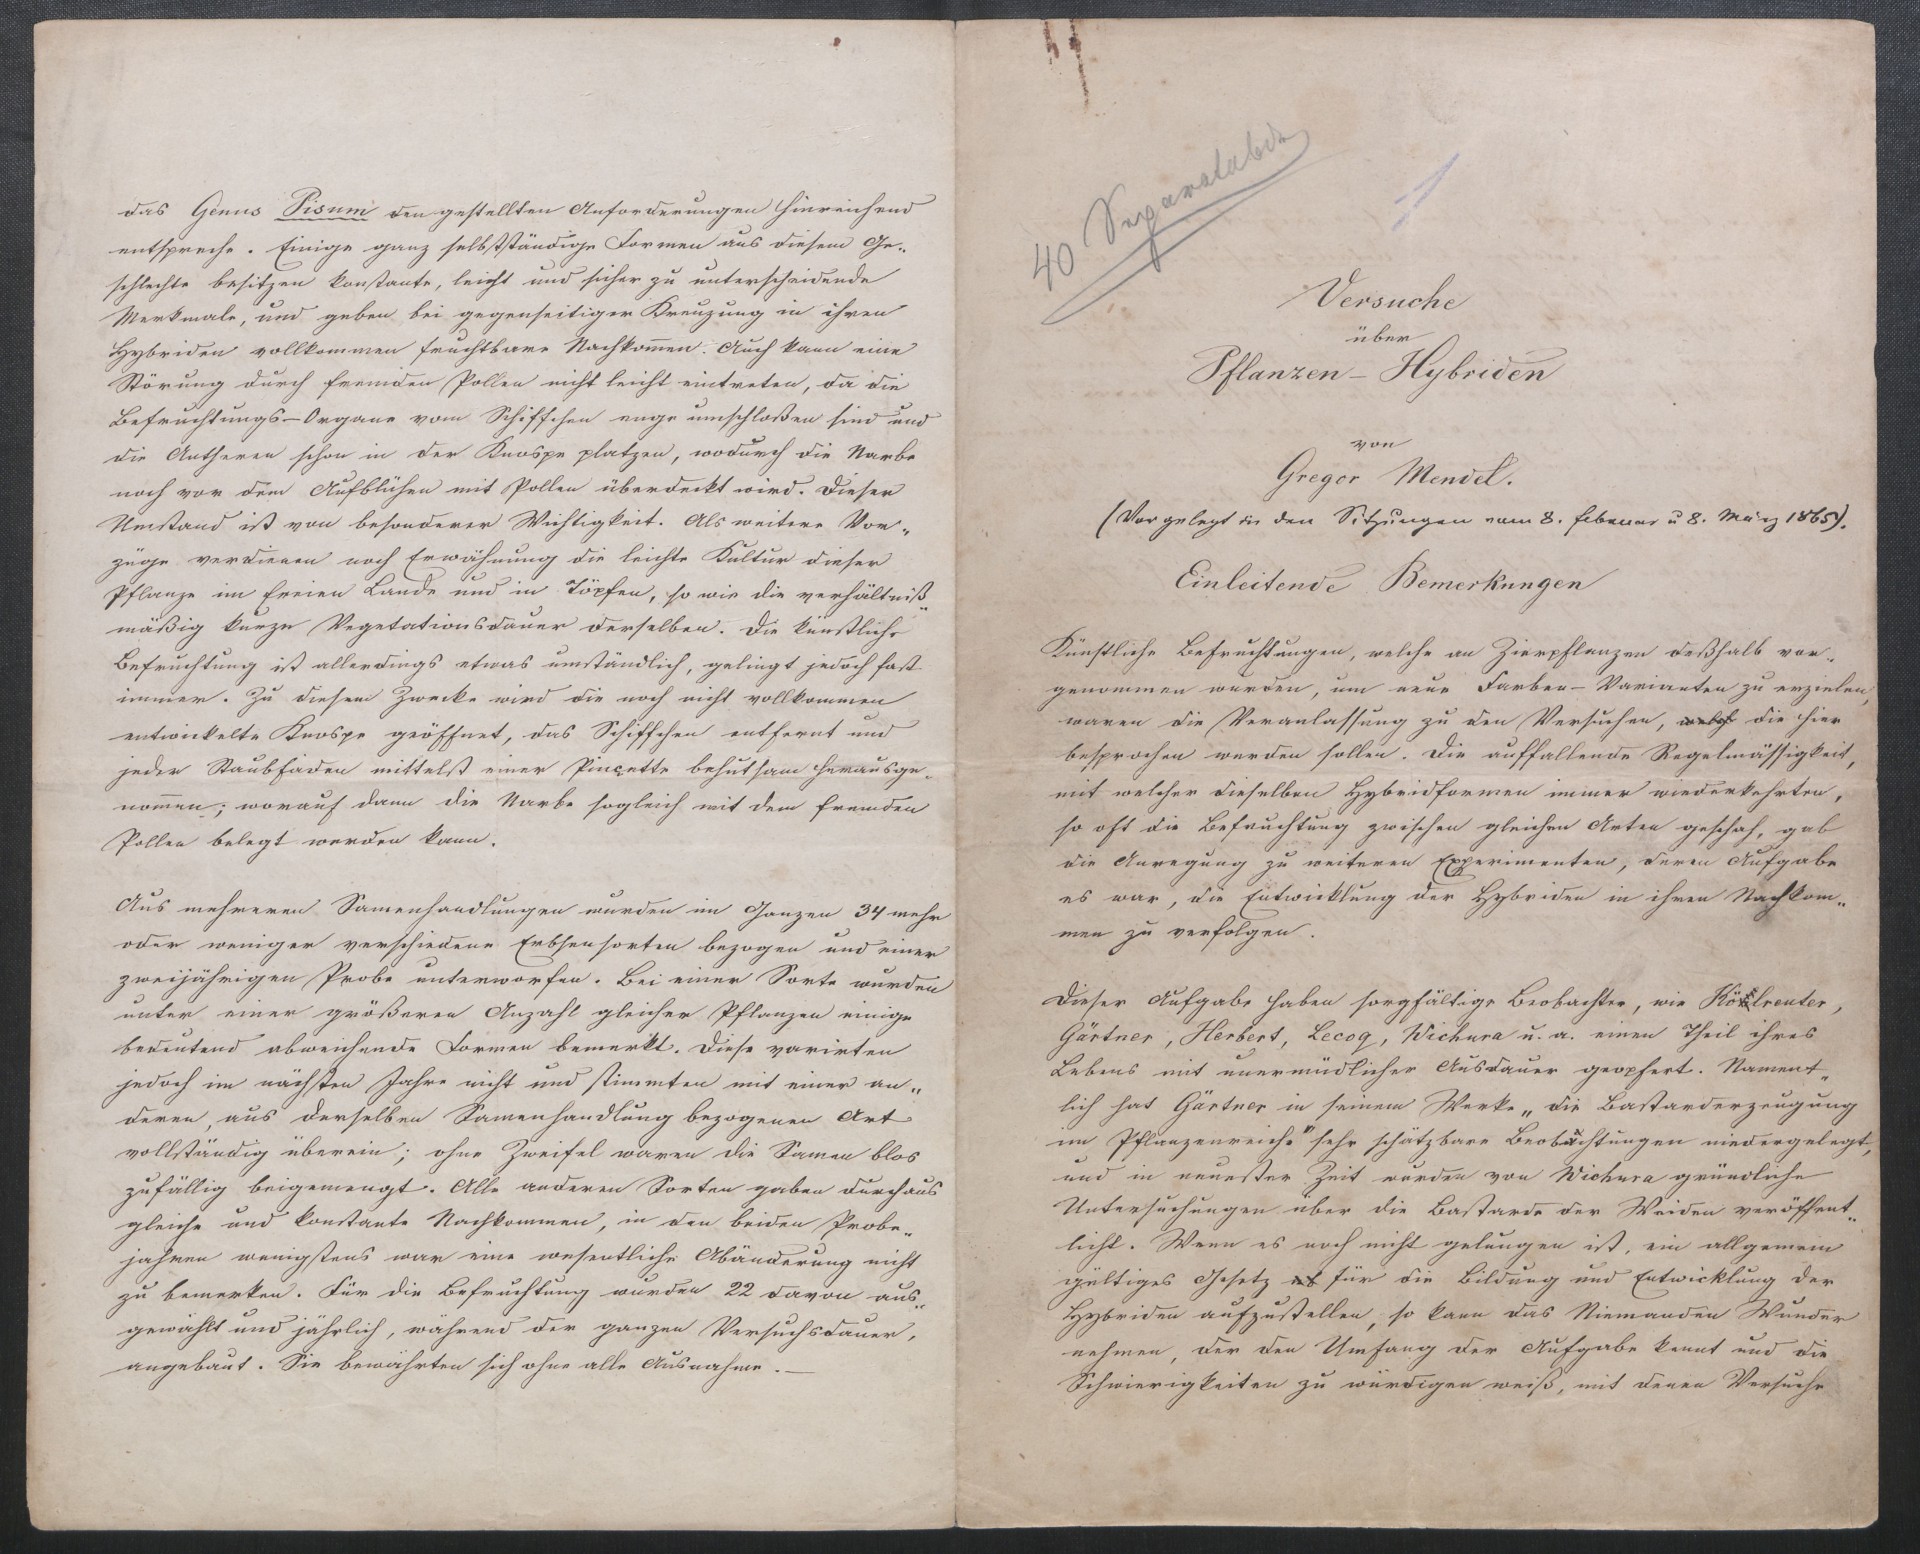 das Genus Pisum den gestellten Anforderungen hinreichend
entspreche. Einige ganz selbstständige Formen aus diesem Ge-
schlechte besitzen konstante, leicht und sicher zu unterscheidende
Merkmale, und geben bei gegenseitiger Kreuzung in ihren
Hybriden vollkommen fruchtbare Nachkom̄en. Auch kann eine
Störung durch fremden Pollen nicht leicht eintreten, da die
Befruchtungs-Organe vom Schiffchen enge umschloßen sind und
die Antheren schon in der Knospe platzen, wodurch die Narbe
noch vor dem Aufblühen mit Pollen überdeckt wird. Dieser
Umstand ist von besonderer Wichtigkeit. Als weitere Vor-
züge verdienen noch Erwähnung die leichte Kultur dieser
Pflanze im freien Lande und in Töpfen, so wie die verhältniß-
mäßig kurze Vegetationsdauer derselben. Die künstliche
Befruchtung ist allerdings etwas umständlich, gelingt jedoch fast
immer. Zu diesem Zwecke wird die noch nicht vollkommen
entwickelte Knospe geöffnet, das Schiffchen entfernt und
jeder Staubfaden mittelst einer Pinçette behutsam herausge-
nom̄en; worauf dann die Narbe sogleich mit dem fremden
Pollen belegt werden kann.
Aus mehreren Samenhandlungen wurden im Ganzen 34 mehr
oder weniger verschiedene Erbsensorten bezogen und einer
zweijährigen Probe unterworfen. Bei einer Sorte wurden
unter einer größeren Anzahl gleicher Pflanzen einige
bedeutend abweichende Formen bemerkt. Diese varirten
jedoch im nächsten Jahre nicht und stimmten mit einer an-
deren, aus derselben Samenhandlung bezogenen Art
vollständig überein; ohne Zweifel waren die Samen blos
zufällig beigemengt. Alle anderen Sorten gaben durchaus
gleiche und konstante Nachkommen, in den beiden Probe-
jahren wenigstens war eine wesentliche Abänderung nicht
zu bemerken. Für die Befruchtung wurden 22 davon aus-
gewählt und jährlich, während der ganzen Versuchsdauer,
angebaut. Sie bewährten sich ohne alle Ausnahme.—
40 Separatabdr
1
Versuche
über
Pflanzen-Hybriden
von
Gregor Mendel.
(Vorgelegt in den Sitzungen vom 8. Februar u 8. März 1865).
Einleitende Bemerkungen
Künstliche Befruchtungen, welche an Zierpflanzen deßhalb vor-
genommen wurden, um neue Farben-Varianten zu erzielen,
waren die Veranlassung zu den Versuchen, welche die hier
besprochen werden sollen. Die auffallende Regelmässigkeit,
mit welcher dieselben Hybridformen immer wiederkehrten,
so oft die Befruchtung zwischen gleichen Arten geschah, gab
die Anregung zu weiteren Experimenten, deren Aufgabe
es war, die Entwicklung der Hybriden in ihren Nachkom-
men zu verfolgen.
Dieser Aufgabe haben sorgfältige Beobachter, wie Kölreuter,
Gärtner, Herbert, Lecoq, Wichura u. a. einen Theil ihres
Lebens mit unermüdlicher Ausdauer geopfert. Nament-
lich hat Gärtner in seinem Werke „die Bastarderzeugung
im Pflanzenreiche" sehr schätzbare Beobachtungen niedergelegt,
und in neuester Zeit wurden von Wichura gründliche
Untersuchungen über die Bastarde der Weiden veröffent-
licht. Wenn es noch nicht gelungen ist, ein allgemein
gültiges Gesetz für die Bildung und Entwicklung der
Hybriden aufzustellen, so kann das Niemanden Wunder
nehmen, der den Umfang der Aufgabe kennt und die
Schwierigkeiten zu würdigen weiß, mit denen Versuche